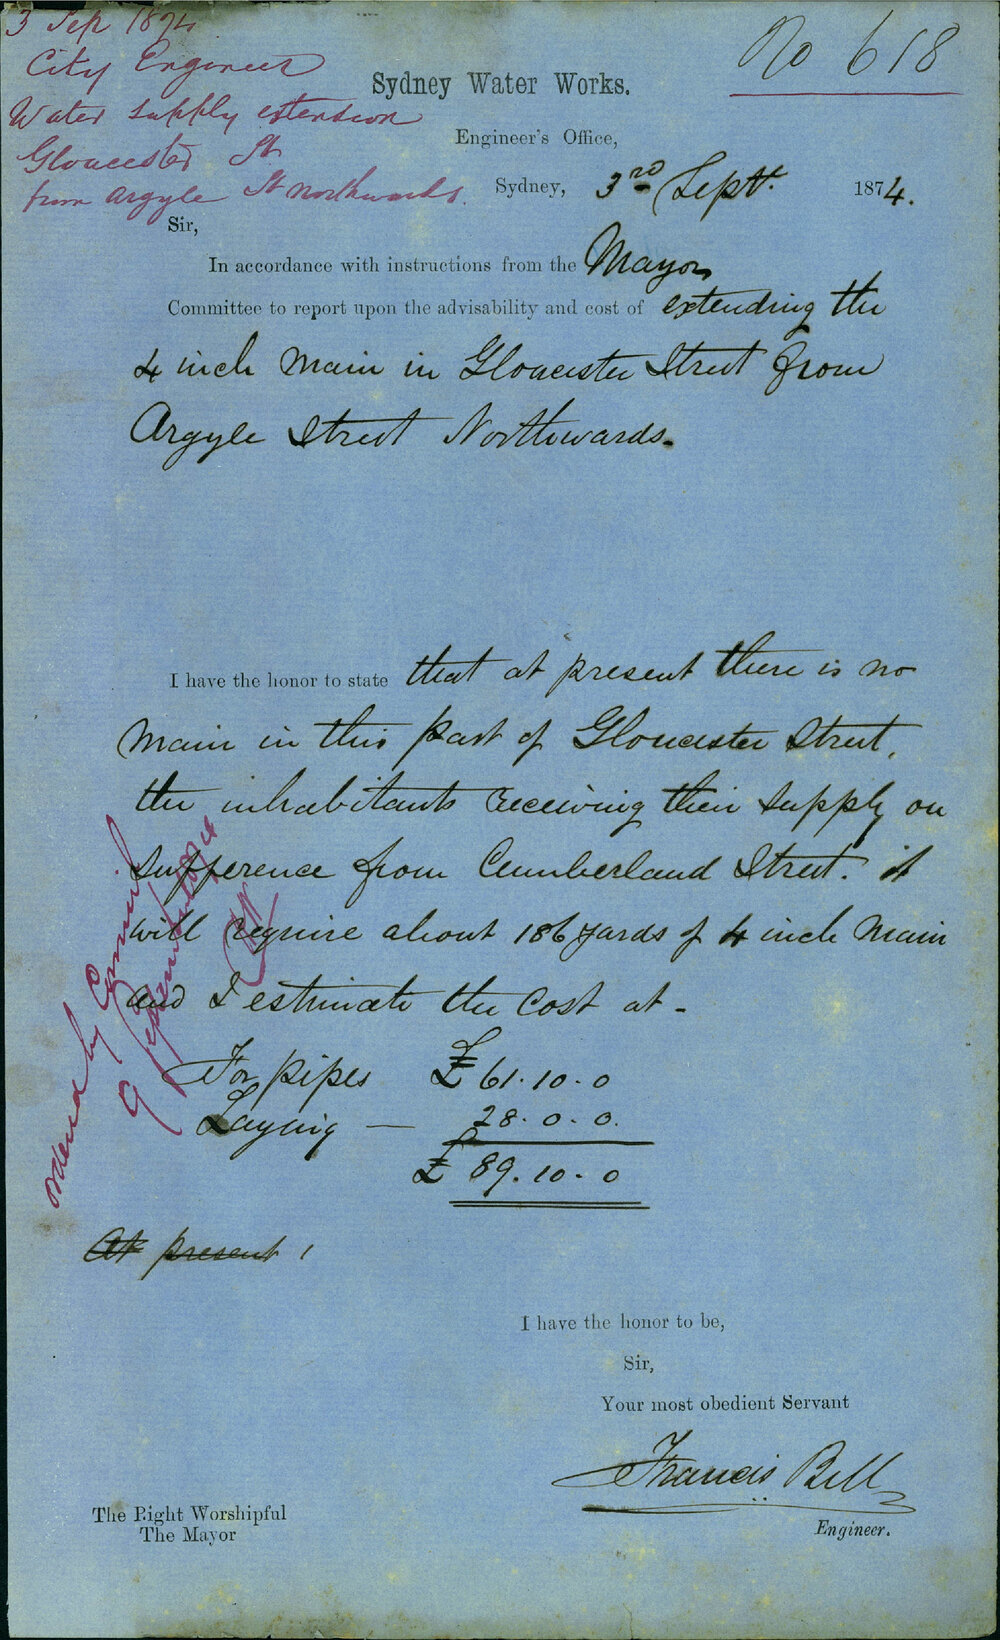 3 Sep 1874
City Engineer
Water supply extension
Gloucester St
from Argyle St northwards.
No 618
Sydney Water Works.
Engineer's Office,
Sydney, 3rd Sept. 1874.
Sir,
In accordance with instructions from the Mayor
Committee to report upon the advisability and cost of extending the
4 inch Main in Gloucester Street from
Argyle Street Northwards.
I have the honor to state that at present there is no
Main in this part of Gloucester Street,
the inhabitants receiving their supply on
sufference from Cumberland Street. it
will require about 186 yards of 4 inch Main
and I estimate the cost at -
For pipes £ 61.10.0
Laying — 28.0.0.
£ 89.10.0
At present
ordered by Council
9 September 1874
I have the honor to be,
Sir,
Your most obedient Servant
Francis Bell
Engineer.
The Right Worshipful
The Mayor